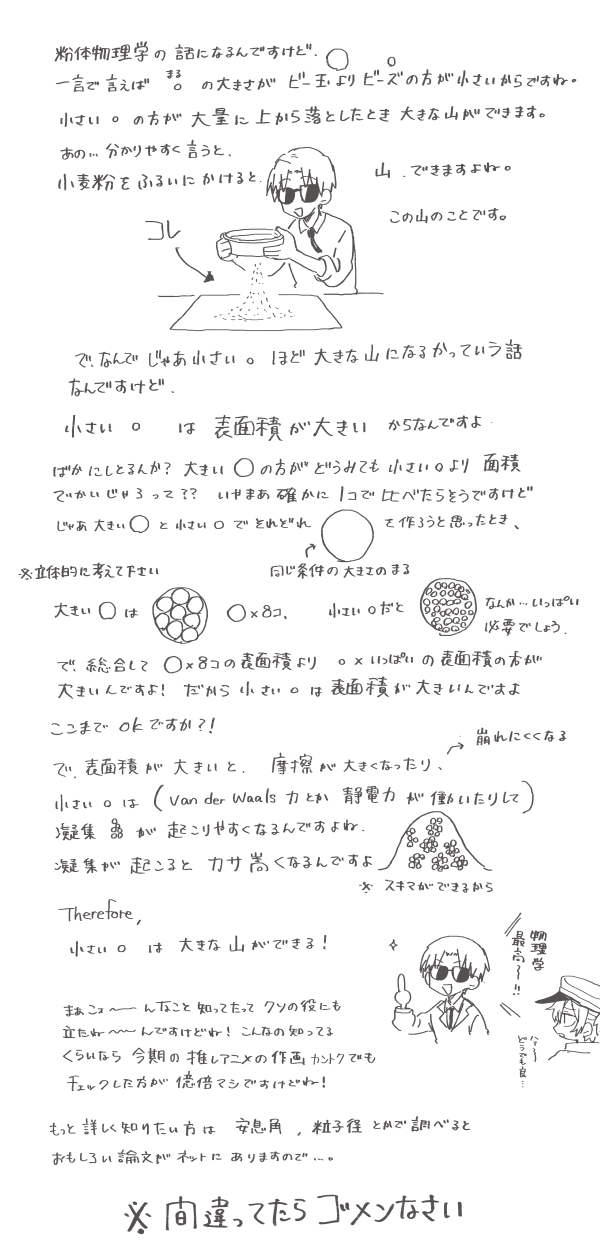 粉体物理学の話になるんですけど.
一言で言えば ○ の大きさが ビー玉よりビーズの方が小さいからですね。
まる
小さい○の方が大量に上から落としたとき大きな山ができます。
あの…分かりやすく言うと、
小麦粉をふるいにかけると.
山.できますよね。
この山のことです。
コレ
で、なんでじゃあ小さい○ほど大きな山になるかっていう話
なんですけど.
小さい○は表面積が大きいからなんですよ
ばかにしとるんか?大きい○の方がどうみても小さい○より面積
でかいじゃろって??いやまあ確かに1コで比べたらそうですけど
じゃあ大きい○と小さい○でそれぞれ○を作ろうと思ったとき、
※立体的に考えて下さい
同じ条件の大きさのまる
大きい○は ○×8コ.
小さい○だと
なんか…いっぱい
必要でしょう.
で.総合して○×8コの表面積より○×いっぱいの表面積の方が
大きいんですよ!だから小さい○は表面積が大きいんですよ
ここまでokですか?!
崩れにくくなる
で.表面積が大きいと.摩擦が大きくなったり、
小さい○は(Van der Waals力とか静電力が働いたりして)
凝集が起こりやすくなるんですよね.
凝集が起こるとカサ嵩くなるんですよ
※スキマができるから
Therefore,
小さい○は大きな山ができる!
物理学
最高〜!!
まぁこォ〜〜んなこと知ってたってクソの役にも
立たね〜〜んですけどね!こんなの知ってる
くらいなら今期の推しアニメの作画カントクでも
チェックした方が億倍マシですけどね!
どうでも良…
もっと詳しく知りたい方は 安息角,粒子径とかで調べると
おもしろい論文がネットにありますので…。
※間違ってたらゴメンなさい